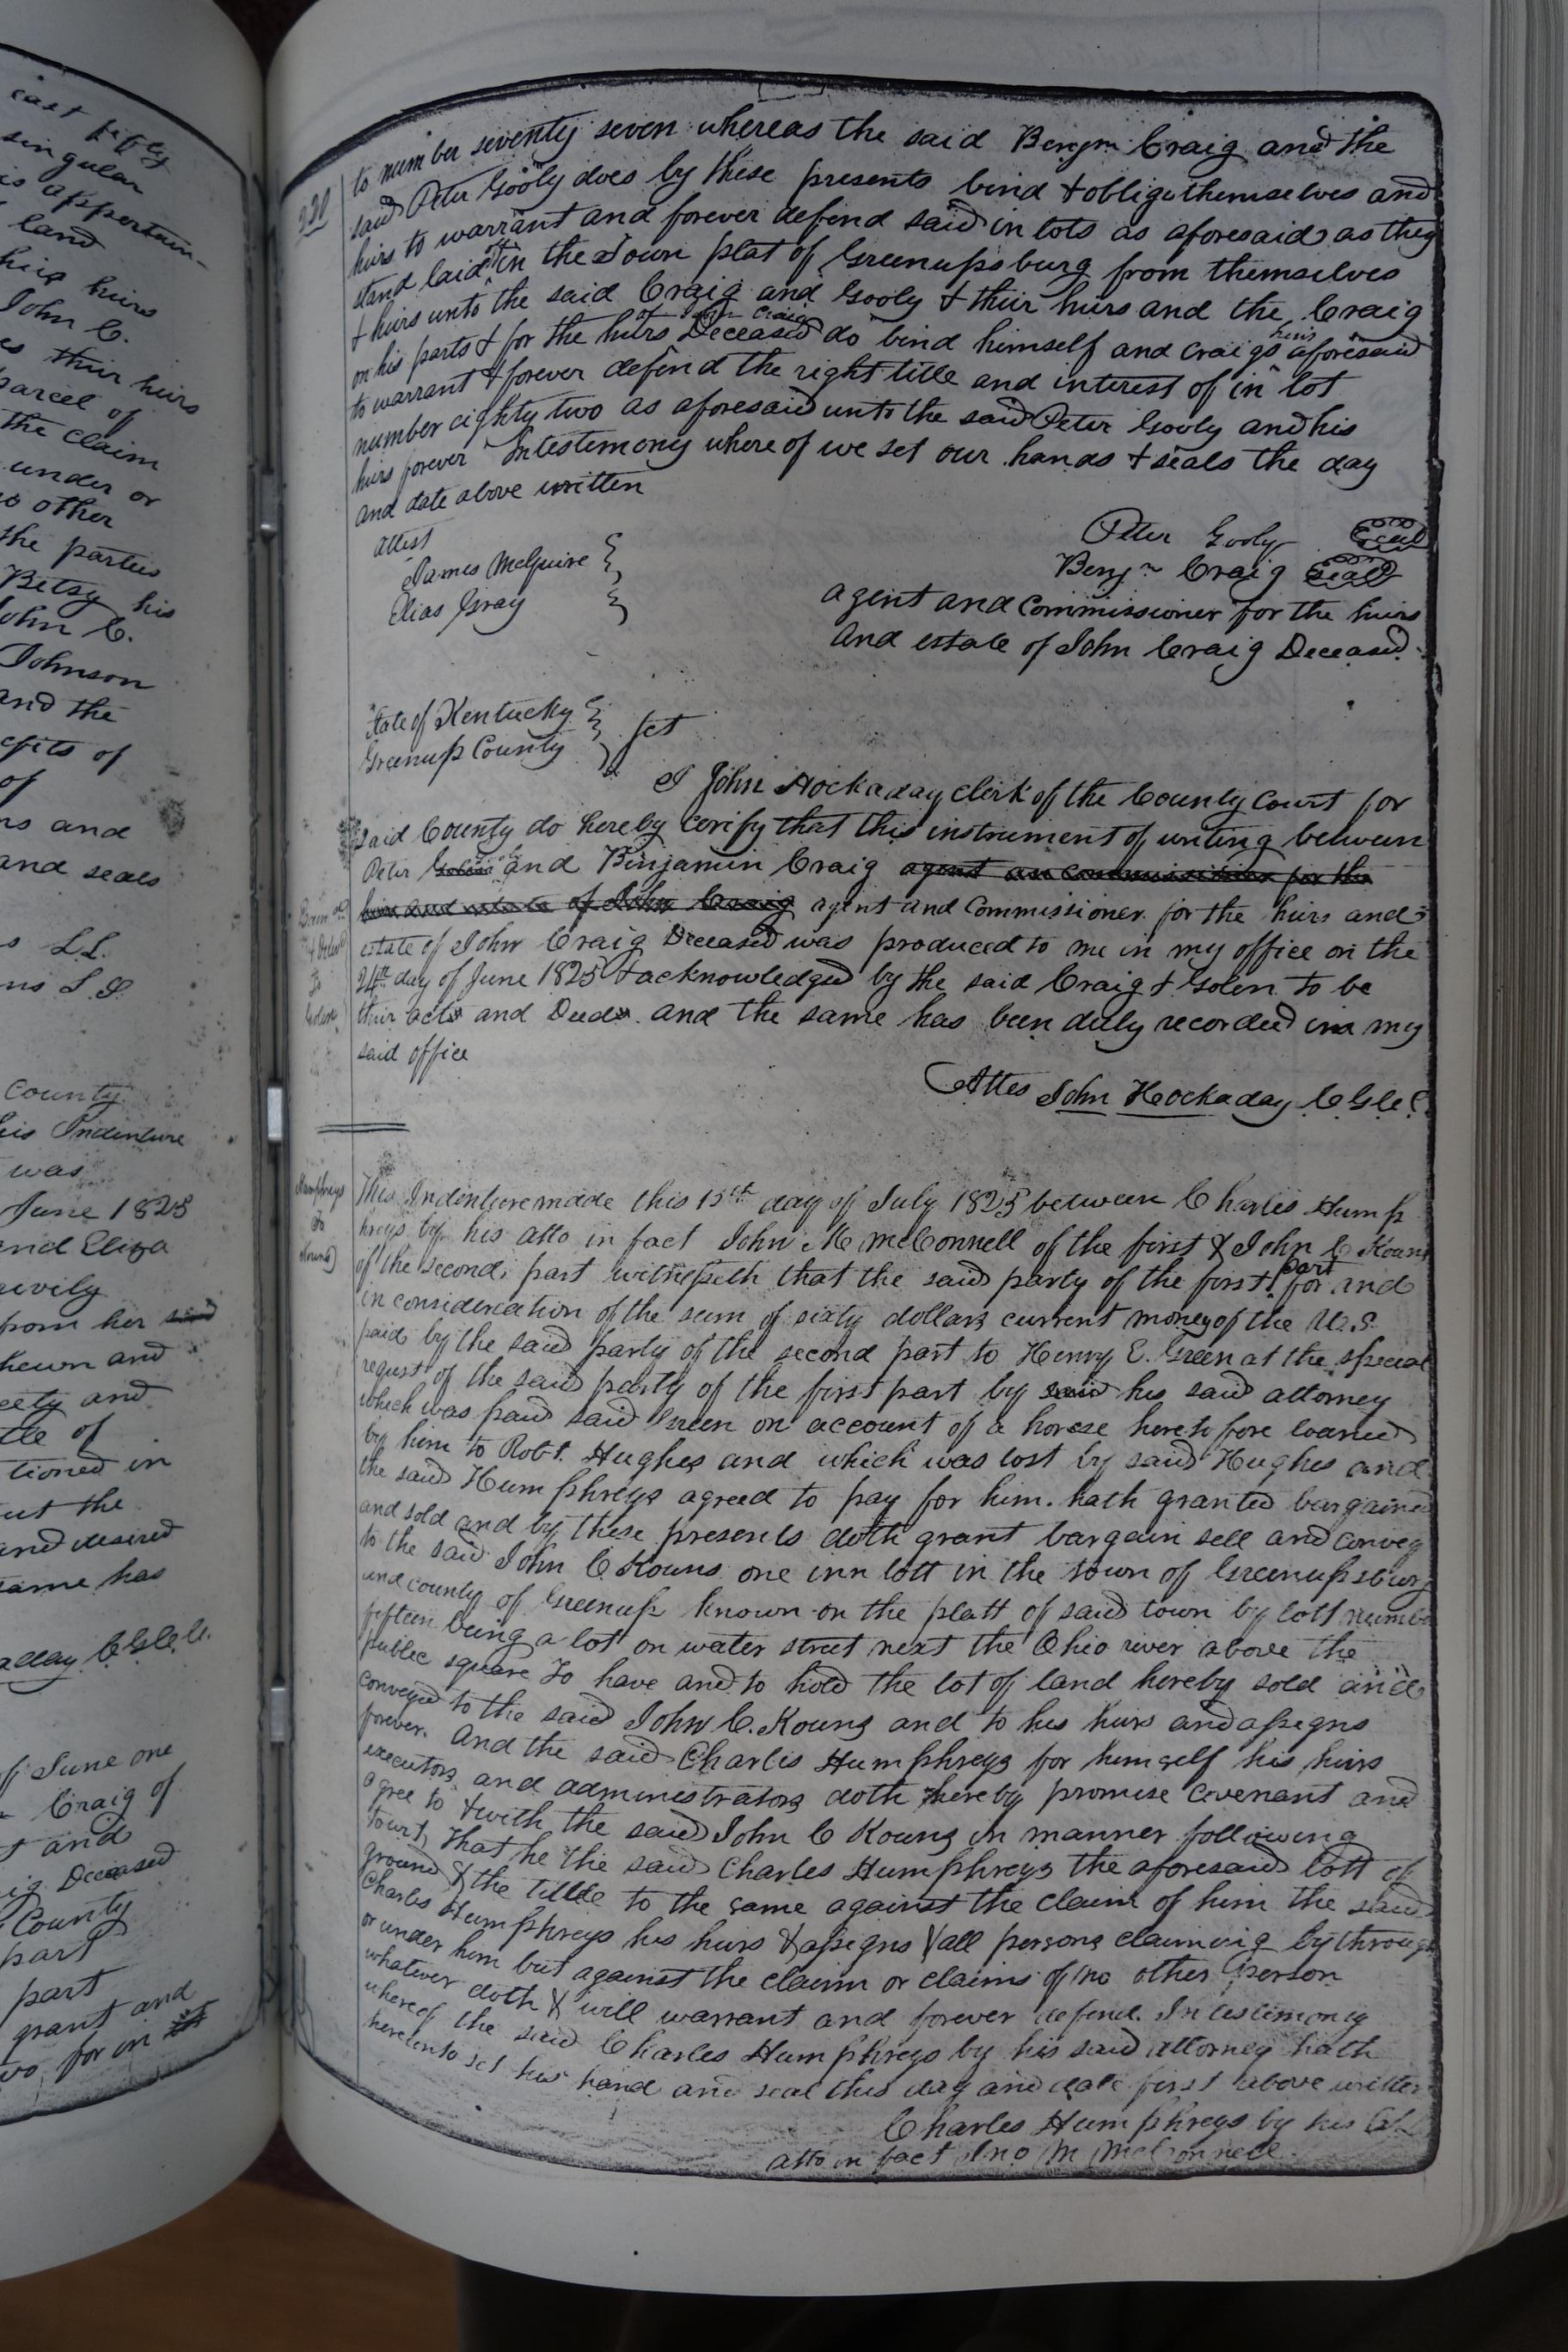 east fifty
singular
is appertain-
land
heirs
John C.
es their heirs
parcel of
the claim
under or
no other
the parties
Betsy his
John C.
Johnson
and the
efits of
of
ns and
and seals
s L.S.
ns L.S.
County
his Indenture
was
June 1825
and Eliza
privily
from her said
shewn and
eely and
tle of
tioned in
ut the
and desired
same has
aday C.G.C.C.
of June one
Craig of
t and
ig Deceased
County
part
part
grant and
two for in
230
to number seventy seven whereas the said Benjm Craig and the
said Peter Gooly does by these presents bind + oblige themselves and
heirs to warrant and forever defend said in lots as aforesaid as they
stand laid off in the Town plat of Greenupsburg from themselves
+ heirs unto the said Craig and Gooly + their heirs and the Craig
on his parts + for the heirs of John Craig Deceased do bind himself and Craigs heirs aforesaid
to warrant + forever defend the right title and interest of in lot
number eighty two as aforesaid unto the said Peter Gooly and his
heirs forever In testemony where of we set our hands + seals the day
and date above written
attest
James McGuire
Elias Gray
Peter Gooly Seal
Benjn Craig Seal
agent and commissioner for the heirs
and estate of John Craig Deceased.
State of Kentucky
Greenup County
Sct
I John Hockaday clerk of the County Court for
said County do hereby cerify that this instrument of writing between
Peter and Benjamin Craig agent an commissioner for the
heirs and estate of John Craig agent and Commissioner for the heirs and
estate of John Craig Deceased was produced to me in my office on the
24th day of June 1825 + acknowledged by the said Craig + Golen to be
their acts and Deeds. and the same has been duly recorded in my
said office
Attes John Hockaday C G C C
Humphreys
To
Kouns
This Indenture made this 15th day of July 1825 between Charles Hump
hreys by his atto in fact John M McConnell of the first & John C Kouns
of the second part witnesseth that the said party of the first part for and
in consideration of the sum of sixty dollars current money of the U.S.
paid by the said party of the second part to Henry E. Green at the special
request of the said party of the first part by said his said attorney
which was paid said Green on account of a horse here to fore loaned
by him to Robt. Hughes and which was lost by said Hughes and
the said Humphreys agreed to pay for him. hath granted bargained
and sold and by these presents doth grant bargain sell and convey
to the said John C Kouns one inn lott in the town of Greenupsburg
and county of Greenup known on the platt of said town by lott number
fifteen being a lot on water street next the Ohio river above the
public square To have and to hold the lot of land hereby sold and
conveyed to the said John C. Kouns and to his heirs and assigns
forever. And the said Charles Humphreys for himself his heirs
executors and administrators doth hereby promise covenant and
agree to + with the said John C Kouns in manner following
towit, That he the said Charles Humphreys the aforesaid lott of
ground & the tittle to the same against the claim of him the said
Charles Humphreys his heirs & assigns & all persons claiming by through
or under him but against the claim or claims of no other person
whatever doth & will warrant and forever defend. In testimony
whereof the said Charles Humphreys by his said attorney hath
hereunto set his hand and seal this day and date first above written
Charles Humphreys by his
atto in fact Jno M McConnell